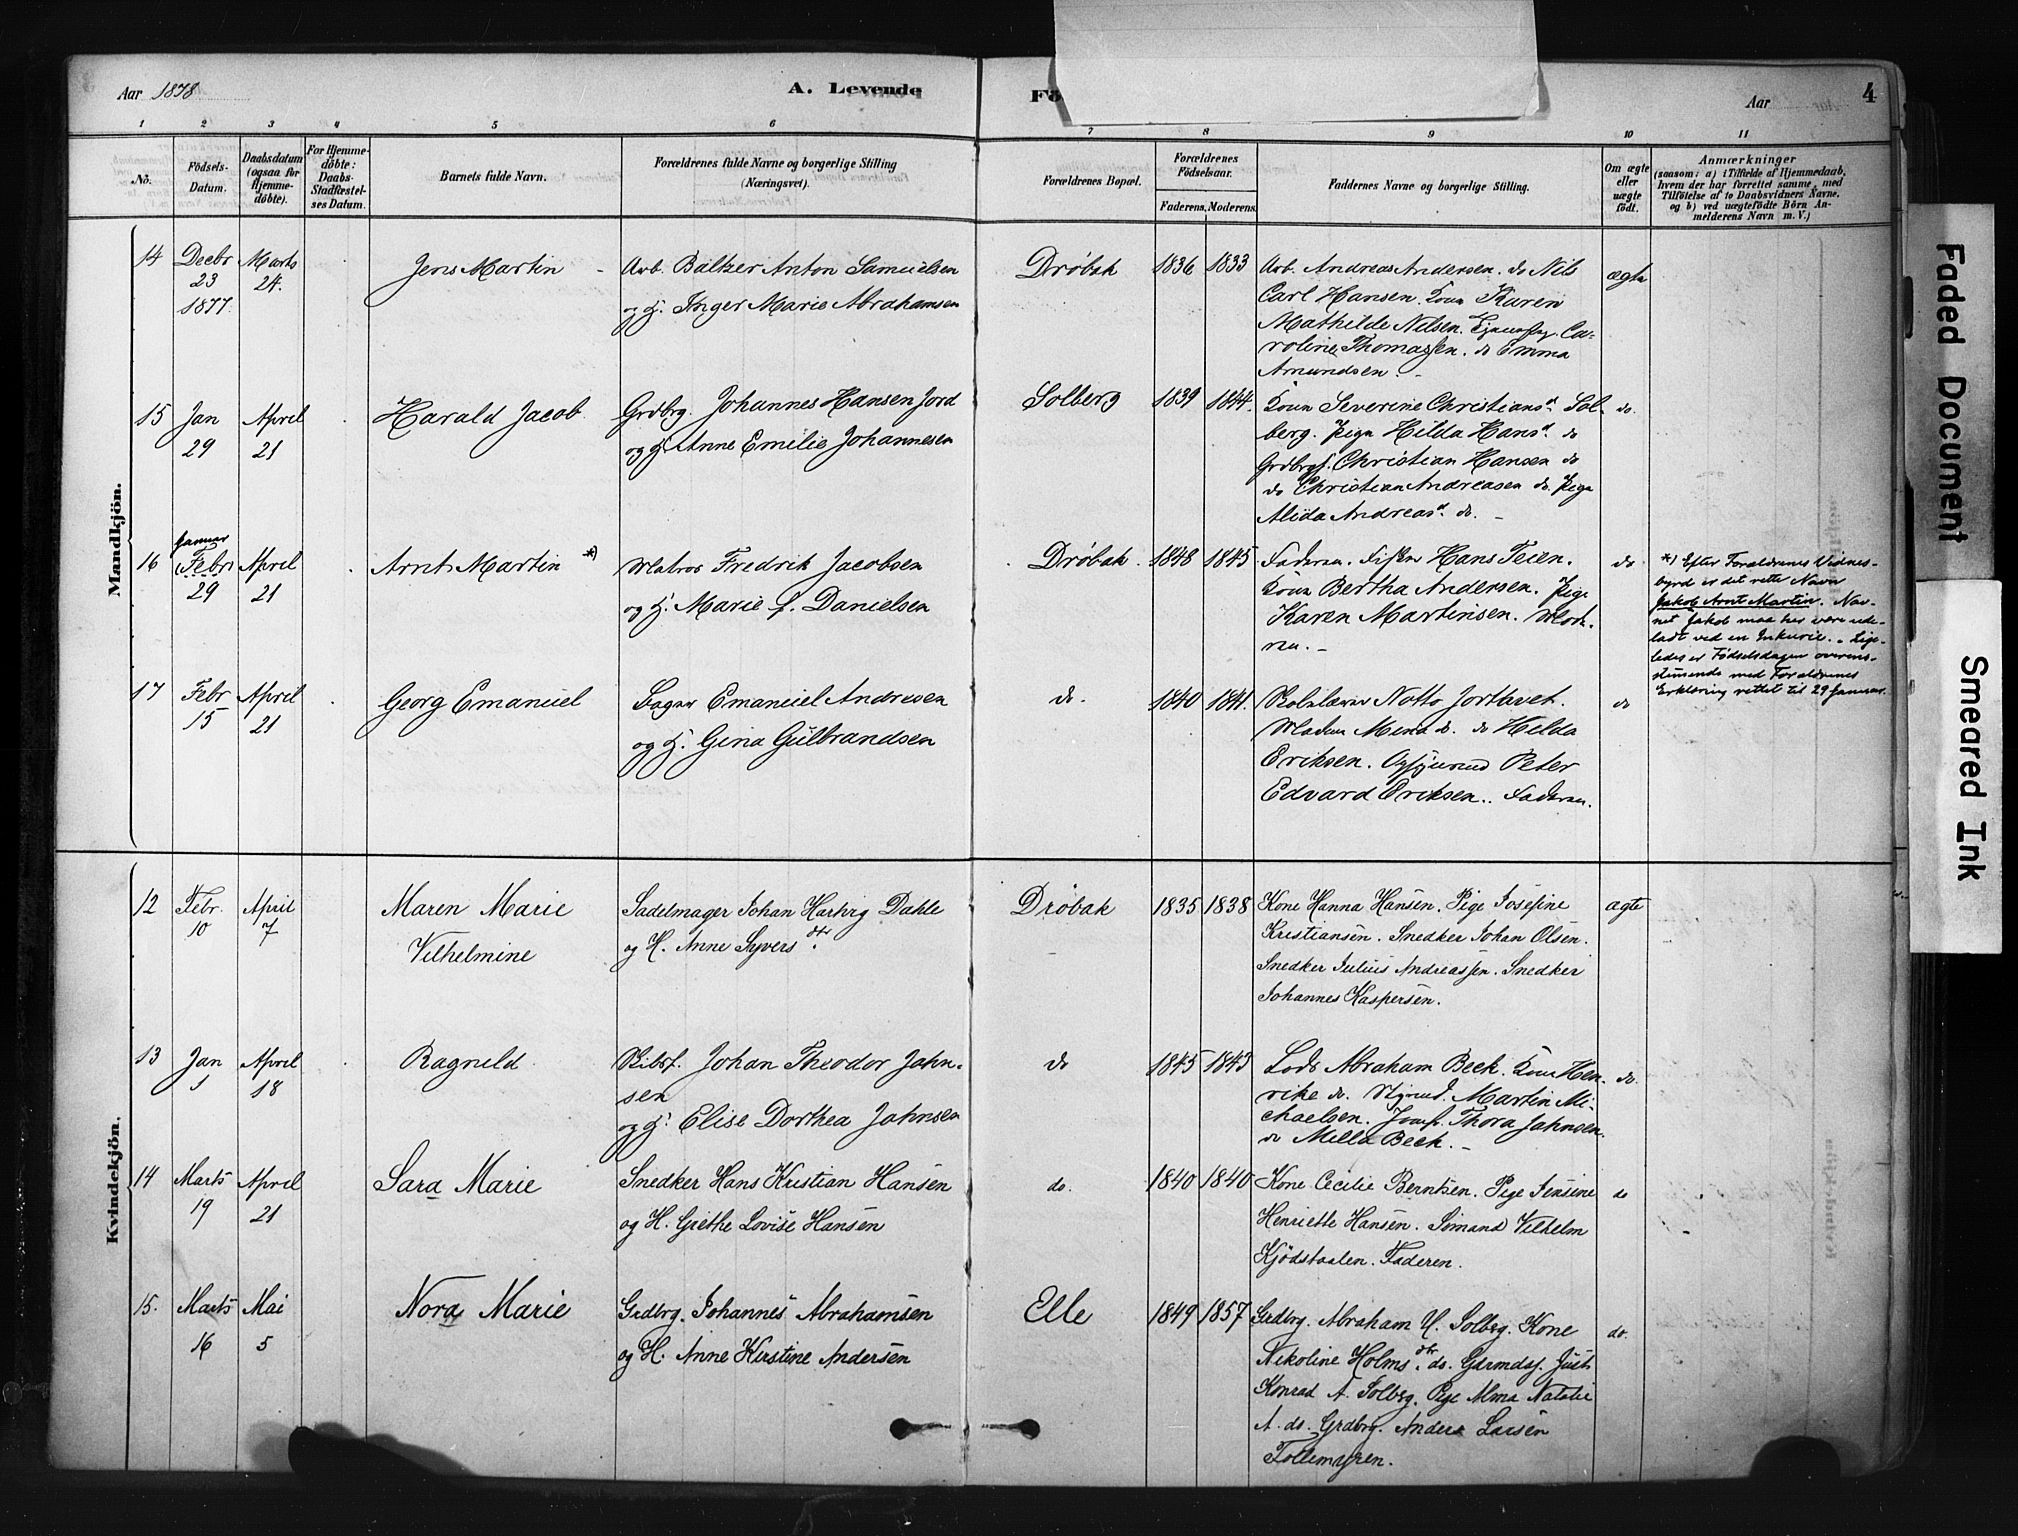 Aar 1878
A. Levende
Fö
Aar
4
1 2 3 4 5 6 7 8 9 10 11
No.
Födsels-
Datum.
Daabsdatum
(ogsaa for
Hjemme-
döbte).
For Hjemme-
döbte:
Daabs-
Stadfæstel-
ses Datum.
Barnets fulde Navn.
Forældrenes fulde Navne og borgerlige Stilling
(Næringsvei).
Forældrenes Bopæl.
Forældrenes
Födselsaar.
Faderens, Moderens.
Faddernes Navne og borgerlige Stilling.
Om ægte
eller
uægte
födt.
Anmærkninger
(saasom: a) i Tilfælde af Hjemmedaab,
hvem der har forrettet samme, med
Tilföielse af to Daabsvidners Navne.
og b) ved uægtefödte Börn An-
melderens Navn m. V.)
Mandkjön.
14
Decbr
23
1877
Marts
24.
Jens Martin
Arb. Baltzer Anton Samuelsen
og H. Inger Marie Abrahamsen
Drøbak
1836 1833
Arb. Andreas Andersen. do Nils
Carl Hansen. Kone Karen
Mathilde Nilsen. Ca-
roline Thomassen. do Emma
Amundsen.
ægte
15
Jan
29
April
21
Harald Jacob.
Grdbrg. Johannes Hansen Jord
og H. Anne Emilie Johannesen
Solberg
1839 1844.
Kone Severine Christiansd. Sol-
berg. Pige Hilda Hansd. do
Grdbrgs. Christian Hansen do
do Christian Andreasen do. Pige
Alida Andreasd. do.
do.
16
Januar
(Febr)
29
April
21
Arnt Martin *)
Matros Fredrik Jacobsen
og H. Marie f. Danielsen
Drøbak
1848 1845
Faderen. Fisker Hans Teien.
Kone Bertha Andersen. Pige
Karen Martinsen. Mode-
ren.
do
*) Efter Forældrenes Vidnes-
byrd er det rette Navn
Jakob Arnt Martin. Nav-
net Jakob maa her være ude-
ladt ved en Inkurie. Lige-
ledes er Fødselsdagen overens-
stemmende med Forældrenes
Erklæring rettet til 29 Januar.
17
Febr
15
April
21
Georg Emanuel
Bager Emanuel Andresen
og H. Gina Gulbrandsen
do.
1840 1841.
Skolelærer Notto Jorthvet.
Madam Mena do. do Helda
Eriksen. Peter
Edvard Eriksen. Faderen.
do
Kvindekjön.
12
Febr.
10
April
7
Maren Marie
Vilhelmine
Sadelmager Johan Hartvig Dahle
og H. Anne Syversdtr.
Drøbak
1835 1838
Kone Hanna Hansen. Pige Josefine
Kristiansen. Snedker Johan Olsen.
Snedker Julius Andreassen. Snedker
Johannes Kaspersen.
ægte
13
Jan
1
April
18
Ragnild
Skibsf. Johan Theodor Jahn-
sen
og H. Elise Dorthea Jahnsen
do
1845 1843
Lods Abraham Beck. Kone Hen-
rike do. Styrmd. Martin Mi-
chaelsen. Jomf. Thora Jahnsen.
do Milla Beck.
do.
14
Marts
19
April
21
Sara Marie
Snedker Hans Kristian Hansen
og H. Grethe Lovise Hansen
do.
1840 1840
Kone Cecilie Berntsen. Pige Jensine
Henriette Hansen. Sømand Vilhelm
Kjödstaalen. Faderen.
do
15.
Marts
16
Mai
5
Nora Marie
Grdbrg. Johannes Abrahamsen
og H. Anne Kirstine Andersen
Elle
1849 1857
Grdbrg. Abraham H. Solberg. Kone
Nikoline Holmsdtr. do. Garmds. Just
Konrad A. Solbrg. Pige Alma Natalie
A. do. Grdbrg. Anders Larsen
Tollemyren.
do.
Faded Document
Smeared Ink